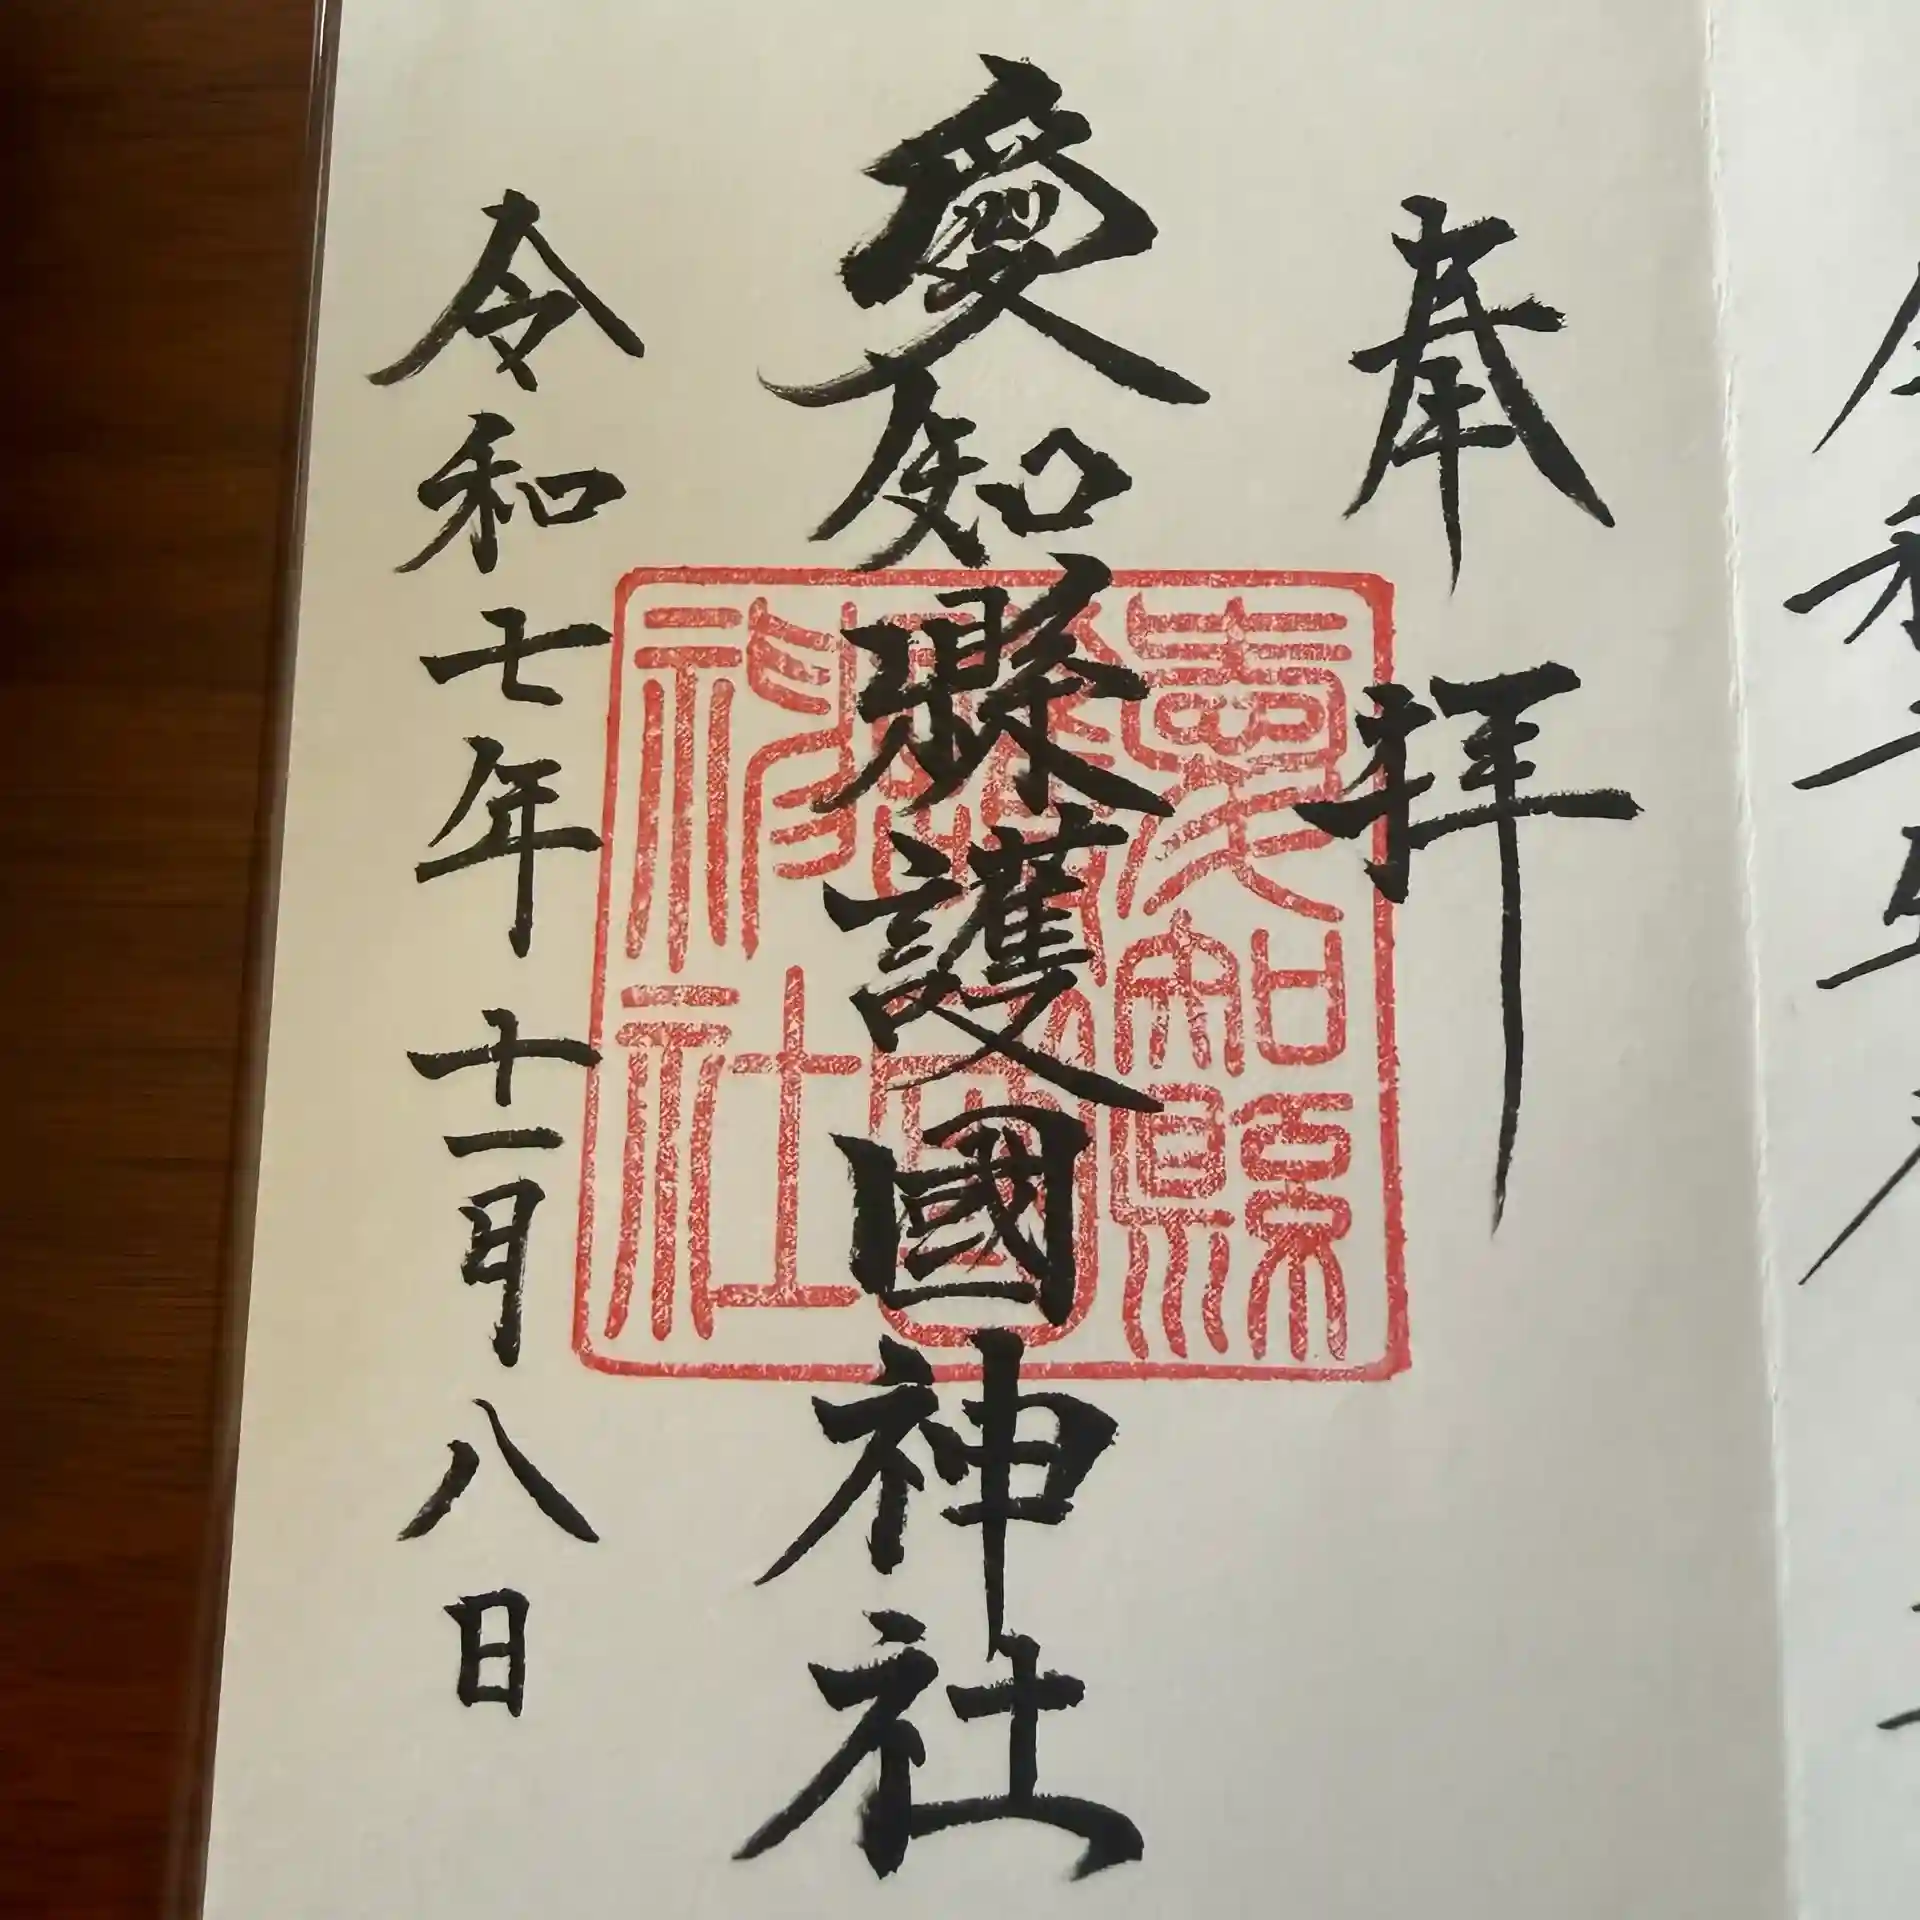 奉拝
愛知縣護國神社
愛知縣
護國
神社
令和七年十一月八日